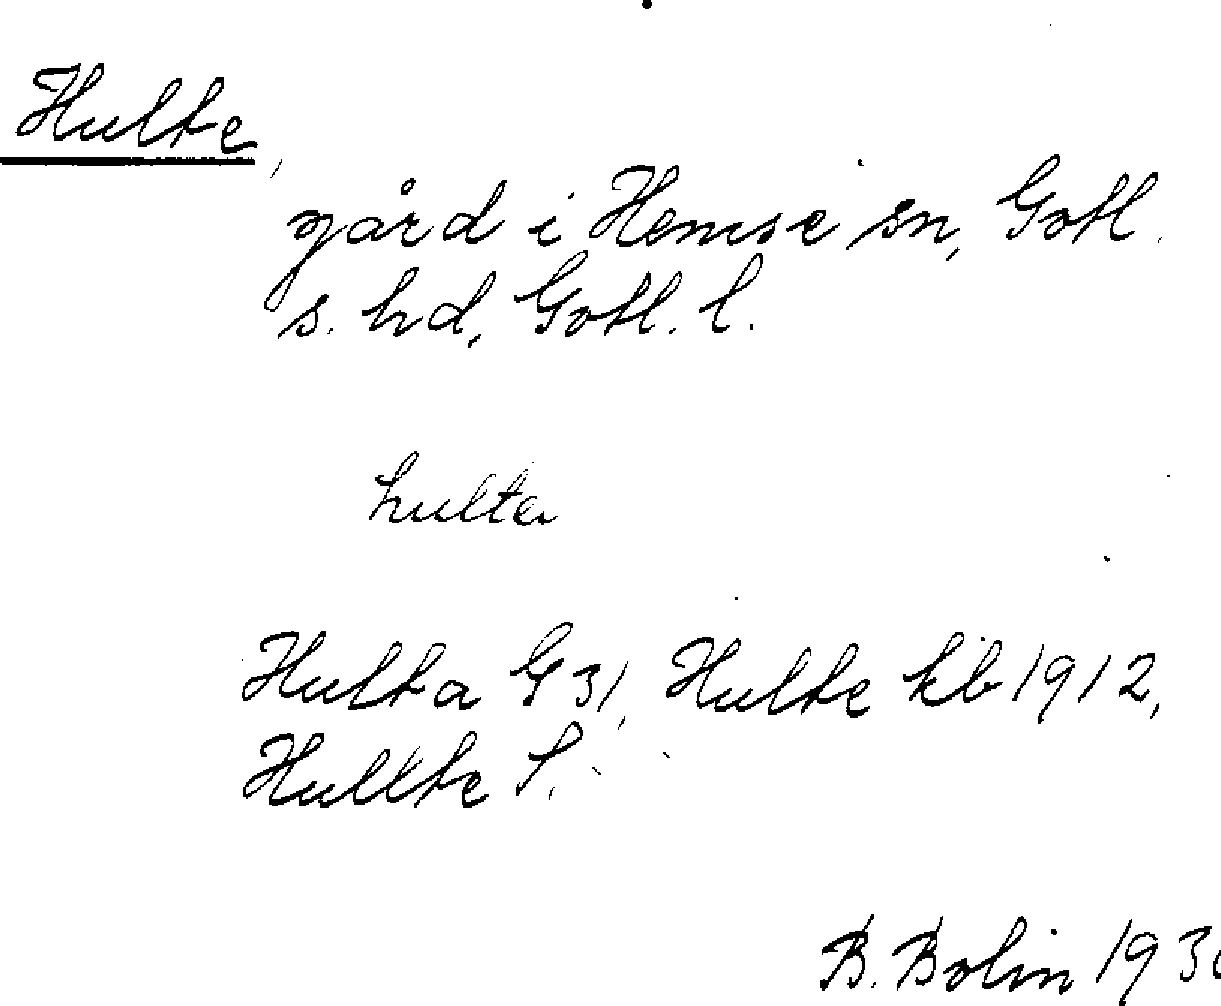 Hulte,
gård i Hemse sn, Gotl.
s. hd, Gotl. l.
hulta
Hulta G 31, Hulte kb 1912,
Hullte S.
B. Bolin 193